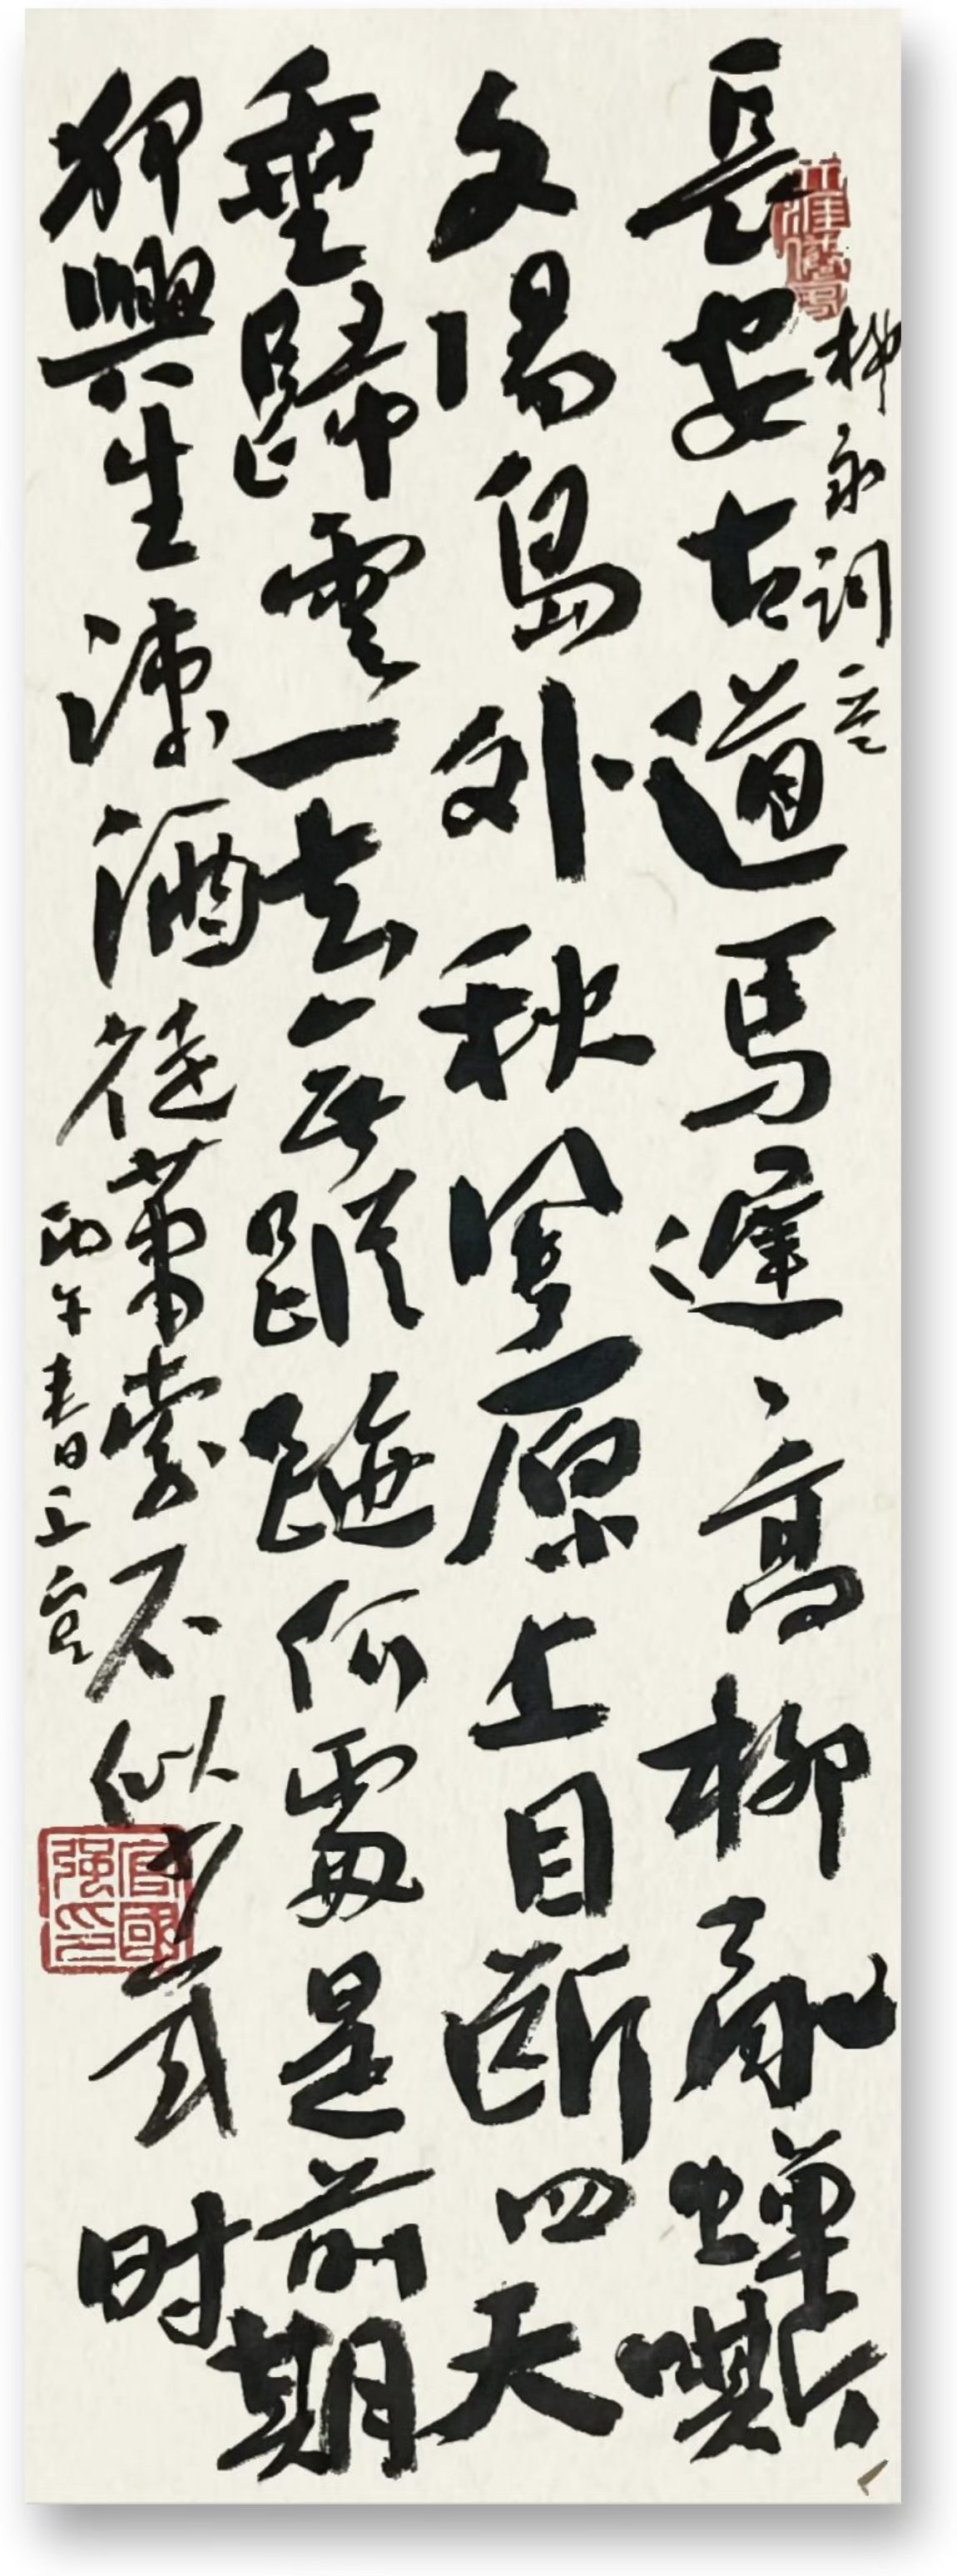 柳永詞
長安古道馬遲〻高柳亂蝉嘶
夕陽島外秋風原上目斷四天
垂歸雲一去無蹤跡何處是前期
狎興生疎酒徒蕭索不似少年时
丙午春日
官國强印